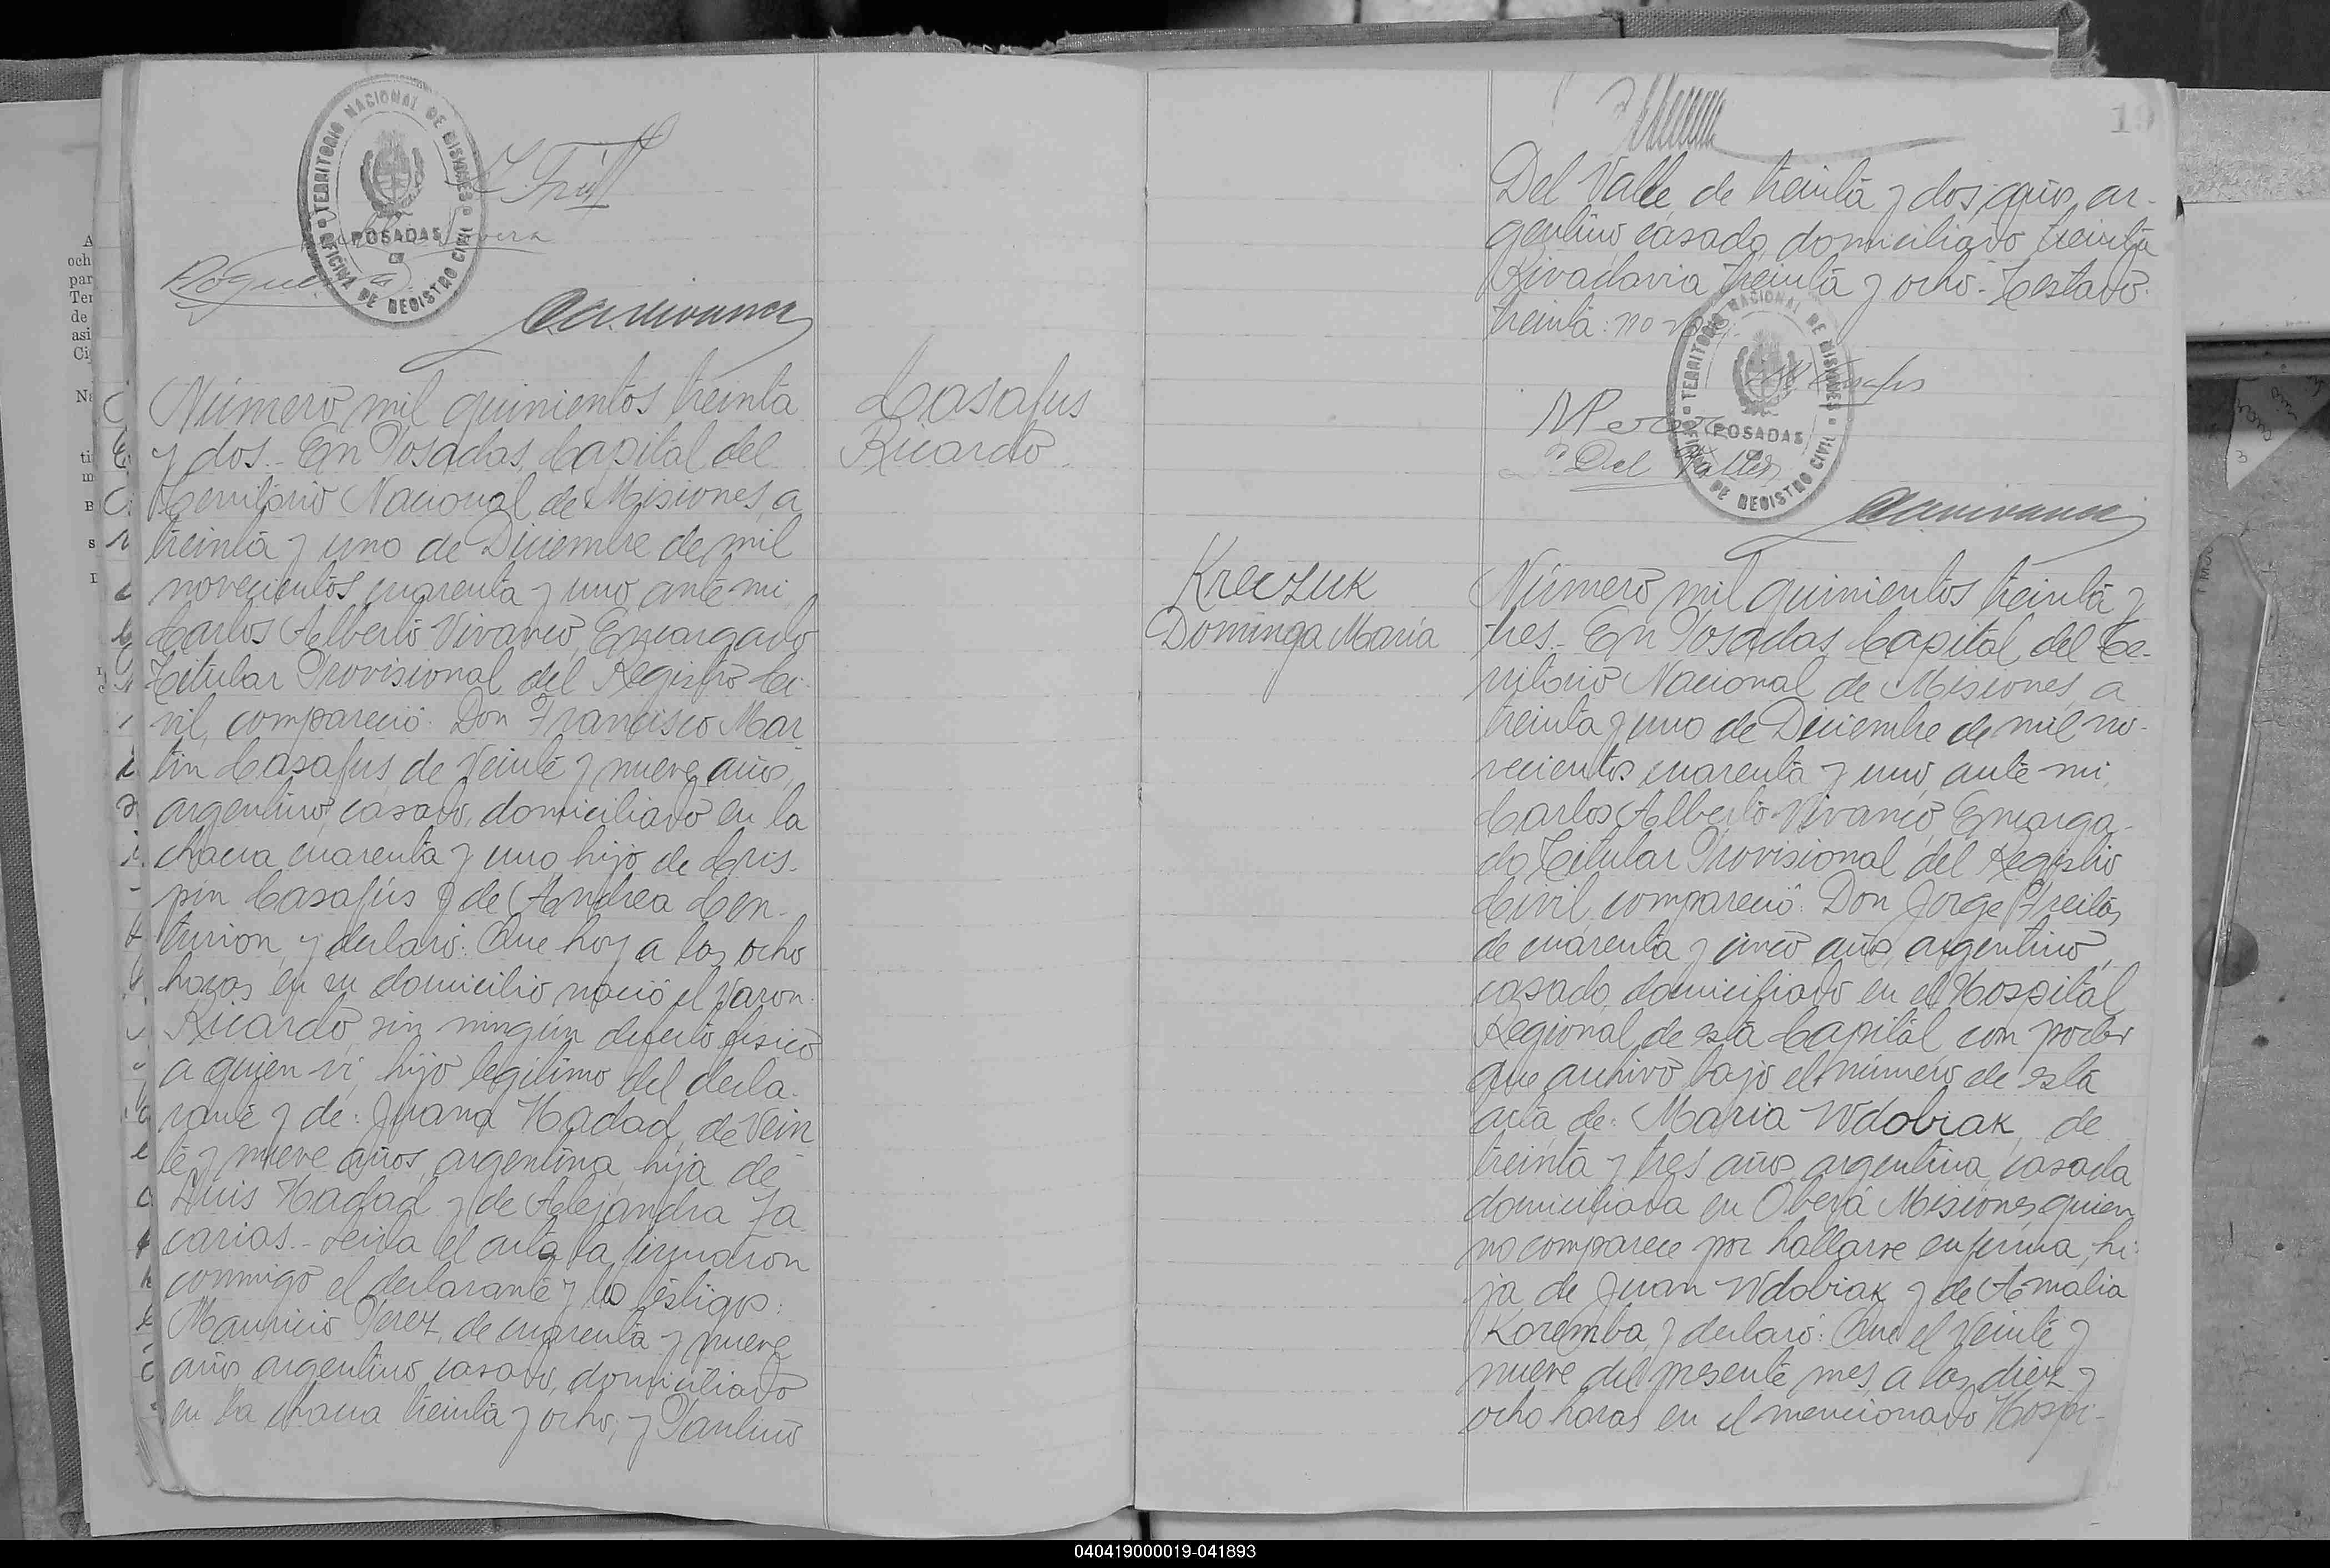 TERRITORIO NACIONAL DE MISIONES
POSADAS
OFICINA DE REGISTRO CIVIL
Número mil quinientos treinta
y dos.- En Posadas, Capital del
Territorio Nacional de Misiones, a
treinta y uno de Diciembre de mil
novecientos cuarenta y uno ante mi
Carlos Alberto Vivanco, Encargado
Titular Provisional del Registro Ci-
vil, compareció: Don Francisco Mar
tin Casafus, de veinte y nueve años,
argentino, casado, domiciliado en la
chacra cuarenta y uno, hijo de Cris-
pin Casafús y de Andrea Cen-
turion, y declaró: Que hoy a las ocho
horas en su domicilio nació el varon:
Ricardo, sin ningún defecto fisico
a quien vi, hijo legitimo del decla-
rante y de: Juana Hadad, de vein
te y nueve años, argentina, hija de
Luis Hadad y de Alejandra Za
carias.- Leida el acta la firmaron
conmigo el declarante y los testigos:
Mauricio Perez, de cuarenta y nueve
años argentino casado, domiciliado
en la chacra treinta y ocho; y Paulino
Casafus
Ricardo
19
Del Valle, de treinta y dos años, ar-
gentino, casado, domiciliado treinta
Rivadavia treinta y ocho.- Testado:
treinta: no vale.
TERRITORIO NACIONAL DE MISIONES
POSADAS
OFICINA DE REGISTRO CIVIL
P. Del Valle
Kreczuk
Dominga María
Número mil quinientos treinta y
tres.- En Posadas, Capital del Te-
rritorio Nacional de Misiones, a
treinta y uno de Diciembre de mil no-
vecientos cuarenta y uno, ante mi,
Carlos Alberto Vivanco, Encarga-
do Titular Provisional del Registro
Civil, compareció: Don Jorge Freitas,
de cuarenta y cinco años, argentino,
casado, domiciliado en el Hospital
Regional de esta Capital con poder
que archivo bajo el número de esta
acta, de: Maria Wdobiak, de
treinta y tres años, argentina, casada
domiciliada en Oberá Misiones, quien
no comparece por hallarse enferma, hi-
ja de Juan Wdobiak y de Amalia
Koremba, y declaró: Que el veinte y
nueve del presente mes, a las diez y
ocho horas en el mencionado Hospi-
040419000019-041893